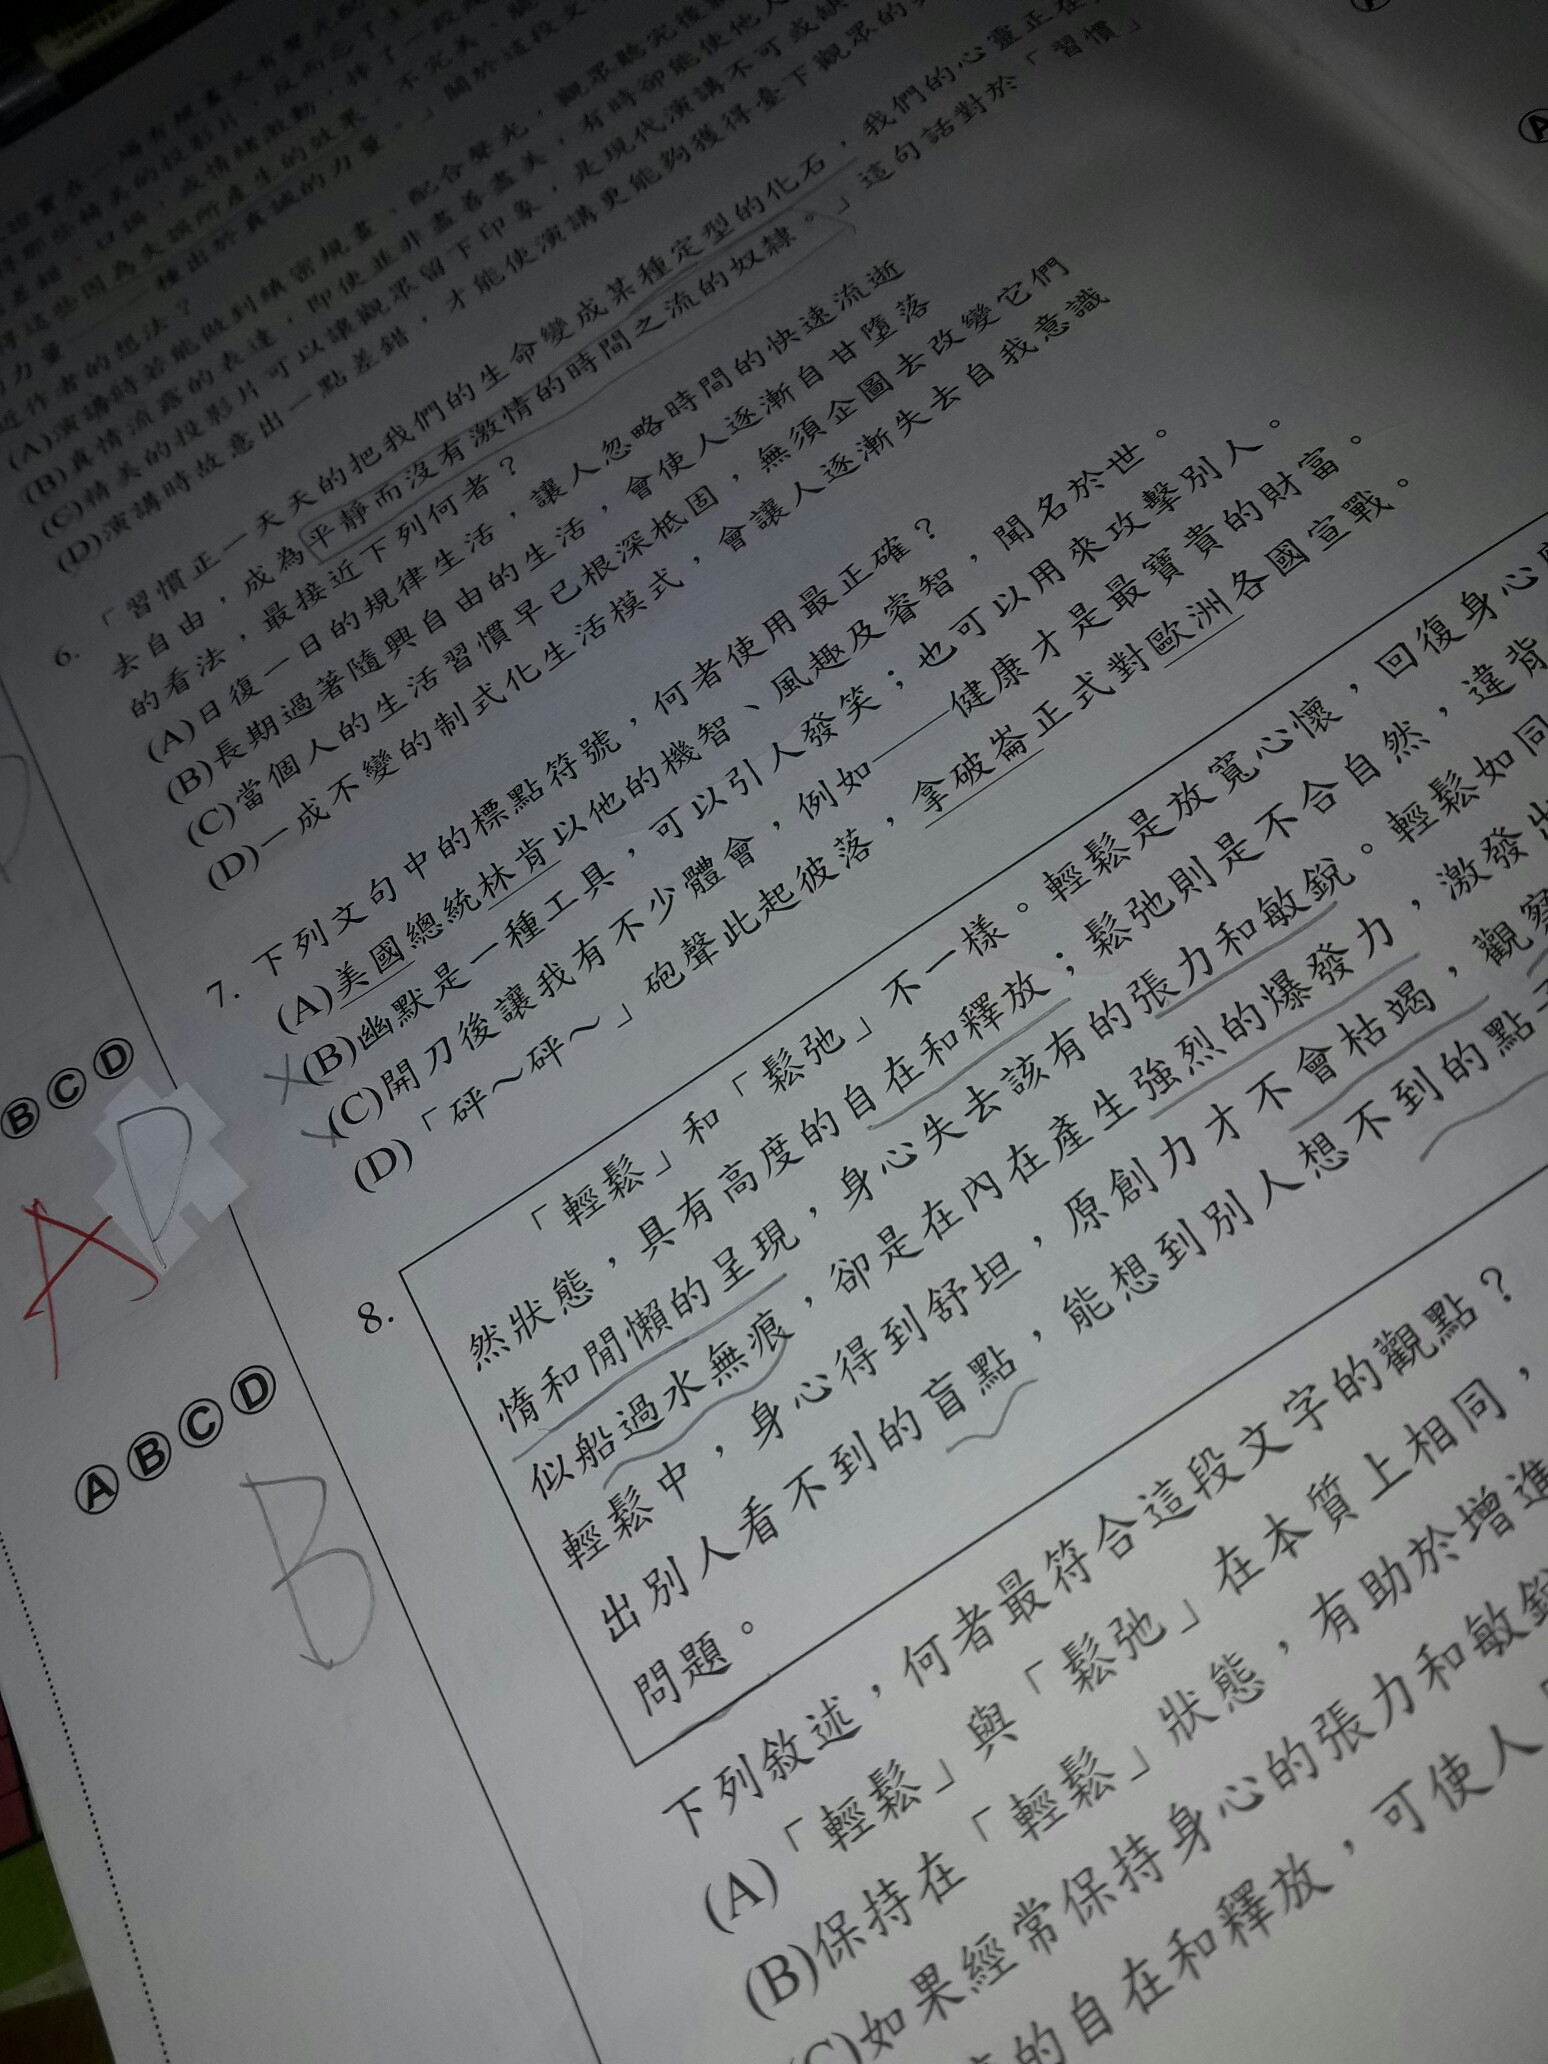 (A)演講時若能做到縝密規畫、配合聲光，觀眾聽完後
(B)真情流露的表達，即使並非盡善盡美，有時卻能使他人
(C)精美的投影片可以讓觀眾留下印象，是現代演講不可或缺
(D)演講時故意出一點差錯，才能使演講更能夠獲得臺下觀眾的
6. 「習慣正一天天的把我們的生命變成某種定型的化石，我們的心靈正在
去自由，成為平靜而沒有激情的時間之流的奴隸。」這句話對於「習慣」
的看法，最接近下列何者？
(A)日復一日的規律生活，讓人忽略時間的快速流逝
(B)長期過著隨興自由的生活，會使人逐漸自甘墮落
(C)當個人的生活習慣早已根深柢固，無須企圖去改變它們
(D)一成不變的制式化生活模式，會讓人逐漸失去自我意識
7. 下列文句中的標點符號，何者使用最正確？
(A)美國總統林肯以他的機智、風趣及睿智，聞名於世。
(B)幽默是一種工具，可以引人發笑；也可以用來攻擊別人。
(C)開刀後讓我有不少體會，例如——健康才是最寶貴的財富。
(D)「砰～砰～」砲聲此起彼落，拿破崙正式對歐洲各國宣戰。
B C D
A D
8.
「輕鬆」和「鬆弛」不一樣。輕鬆是放寬心懷，回復身心
然狀態，具有高度的自在和釋放；鬆弛則是不合自然，違背
惰和閒懶的呈現，身心失去該有的張力和敏銳。輕鬆如同
似船過水無痕，卻是在內在產生強烈的爆發力，激發出
輕鬆中，身心得到舒坦，原創力才不會枯竭，觀察
出別人看不到的盲點，能想到別人想不到的點子
問題。
A B C D
B
下列敘述，何者最符合這段文字的觀點？
(A)「輕鬆」與「鬆弛」在本質上相同，
(B)保持在「輕鬆」狀態，有助於增進
(C)如果經常保持身心的張力和敏銳
的自在和釋放，可使人